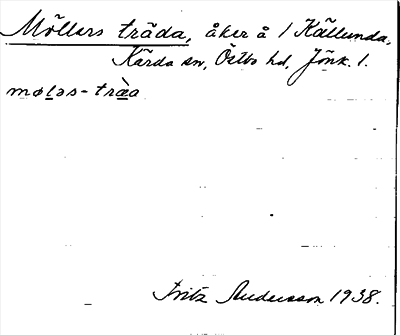 Möllers träda, åker å 1 Källunda,
Kärda sn, Östbo hd, Jönk. l.
møləs-tràa
Fritz Andersson 1938.